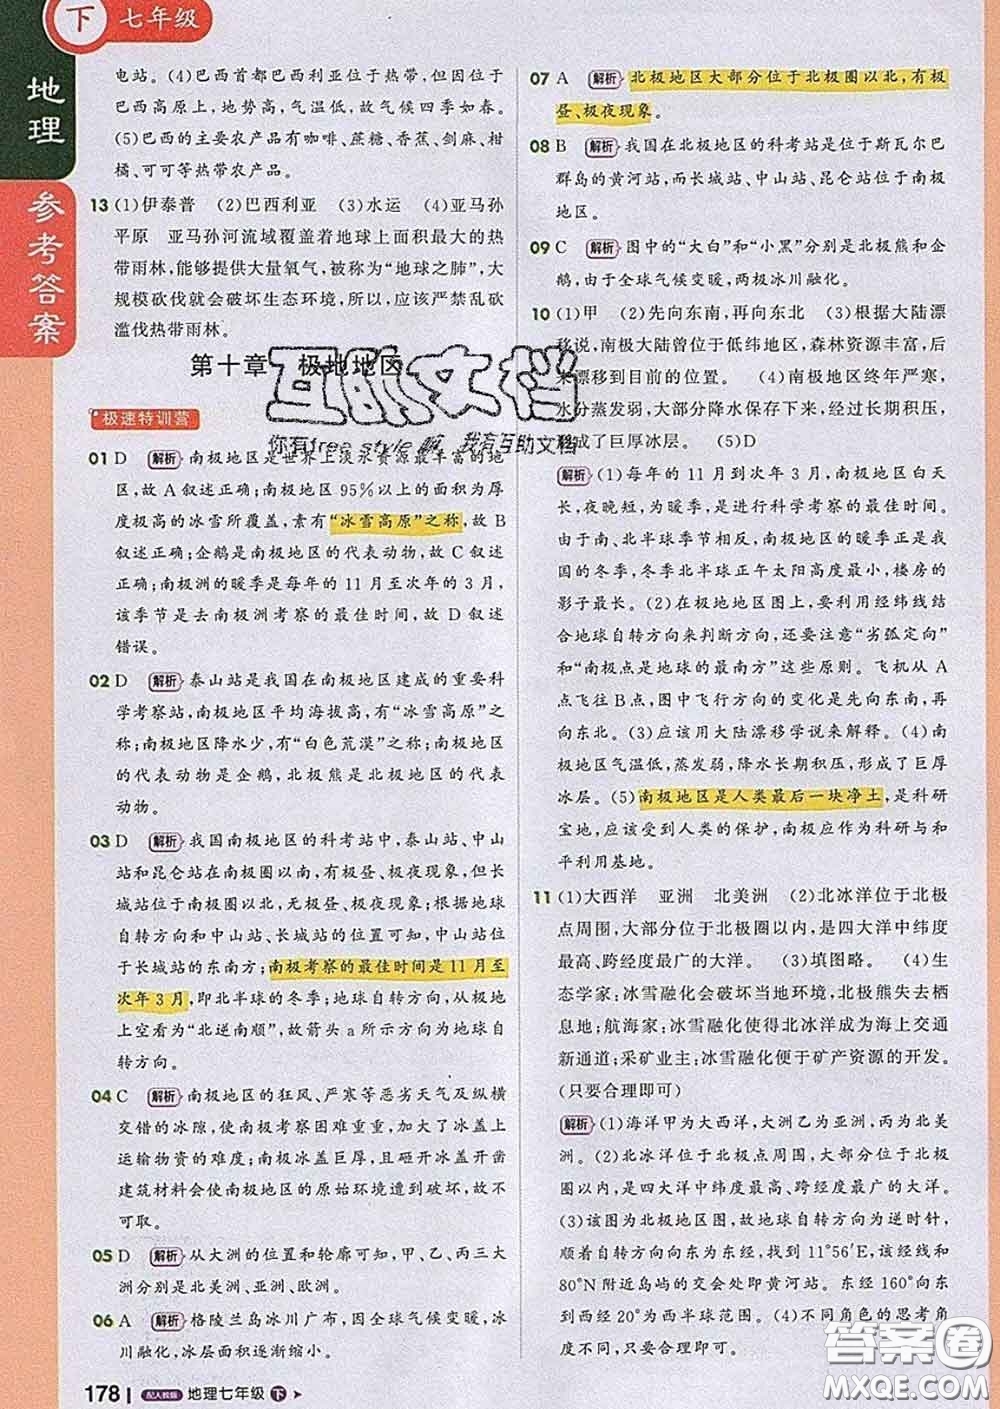 下 七年级
地理
参考答案
电站。(4)巴西首都巴西利亚位于热带,但因位于
巴西高原上,地势高,气温低,故气候四季如春。
(5)巴西的主要农产品有咖啡、蔗糖、香蕉、剑麻、柑
橘、可可等热带农产品。
13 (1)伊泰普 (2)巴西利亚 (3)水运 (4)亚马孙
平原 亚马孙河流域覆盖着地球上面积最大的热
带雨林,能够提供大量氧气,被称为“地球之肺”,大
规模砍伐就会破坏生态环境,所以,应该严禁乱砍
滥伐热带雨林。
第十章 极地地区
极速特训营
01 D 解析 南极地区是世界上淡水资源最丰富的地
区,故A叙述正确;南极地区95%以上的面积为厚
度极高的冰雪所覆盖,素有“冰雪高原”之称,故B
叙述正确;企鹅是南极地区的代表动物,故C叙述
正确;南极洲的暖季是每年的11月至次年的3月,
该季节是去南极洲考察的最佳时间,故D叙述
错误。
02 D 解析 泰山站是我国在南极地区建成的重要科
学考察站,南极地区平均海拔高,有“冰雪高原”之
称;南极地区降水少,有“白色荒漠”之称;南极地区
的代表动物是企鹅,北极熊是北极地区的代表
动物。
03 D 解析 我国南极地区的科考站中,泰山站、中山
站和昆仑站在南极圈以南,有极昼、极夜现象,但长
城站位于南极圈以北,无极昼、极夜现象;根据地球
自转方向和中山站、长城站的位置可知,中山站位
于长城站的东南方;南极考察的最佳时间是11月至
次年3月,即北半球的冬季;地球自转方向,从极地
上空看为“北逆南顺”,故箭头a所示方向为地球自
转方向。
04 C 解析 南极地区的狂风、严寒等恶劣天气及纵横
交错的冰隙,使南极考察困难重重,加大了冰盖上
运输物资的难度;南极冰盖巨厚,且砸开冰盖开凿
建筑材料会使南极地区的原始环境遭到破坏,故不
可取。
05 D 解析 从大洲的位置和轮廓可知,甲、乙、丙三大
洲分别是北美洲、亚洲、欧洲。
06 A 解析 格陵兰岛冰川广布,因全球气候变暖,冰
川融化,冰层面积逐渐缩小。
178 配人教版 地理七年级 下
07 A 解析 北极地区大部分位于北极圈以北,有极
昼、极夜现象。
08 B 解析 我国在北极地区的科考站是位于斯瓦尔巴
群岛的黄河站,而长城站、中山站、昆仑站在南极
地区。
09 C 解析 图中的“大白”和“小黑”分别是北极熊和企
鹅,由于全球气候变暖,两极冰川融化。
10 (1)甲 (2)先向东南,再向东北 (3)根据大陆漂
移说,南极大陆曾位于低纬地区,森林资源丰富,后
来漂移到目前的位置。 (4)南极地区终年严寒,
水分蒸发弱,大部分降水保存下来,经过长期积压,
形成了巨厚冰层。 (5)D
解析 (1)每年的11月到次年3月,南极地区白天
长,夜晚短,为暖季,是进行科学考察的最佳时间。
由于南、北半球季节相反,南极地区的暖季正是我
国的冬季,冬季北半球正午太阳高度最小,楼房的
影子最长。(2)在极地地区图上,要利用经纬线结
合地球自转方向来判断方向,还要注意“劣弧定向”
和“南极点是地球的最南方”这些原则。飞机从A
点飞往B点,图中飞行方向的变化是先向东南,再
向东北。(3)应该用大陆漂移学说来解释。(4)南
极地区气温低,蒸发弱,降水长期积压,形成了巨厚
冰层。(5)南极地区是人类最后一块净土,是科研
宝地,应该受到人类的保护,南极应作为科研与和
平利用基地。
11 (1)大西洋 亚洲 北美洲 (2)北冰洋位于北极
点周围,大部分位于北极圈以内,是四大洋中纬度
最高、跨经度最广的大洋。 (3)填图略。 (4)生
态学家:冰雪融化会破坏当地环境,北极熊失去栖
息地;航海家:冰雪融化使得北冰洋成为海上交通
新通道;采矿业主:冰雪融化便于矿产资源的开发。
(只要合理即可)
解析 (1)海洋甲为大西洋,大洲乙为亚洲,丙为北美
洲。(2)北冰洋位于北极点周围,大部分位于北极
圈以内,是四大洋中纬度最高、跨经度最广的大洋。
(3)该图为北极地区图,故地球自转方向为逆时针,
顺着自转方向向东为东经,找到11°56′E,该经线和
80°N附近岛屿的交会处即黄河站。东经160°向东
到西经20°为西半球范围。(4)不同角色的思考角
度不同,只要合理即可。
互助文档
你有free style 嘛,我有互助文档
答案圈
MXQE.COM